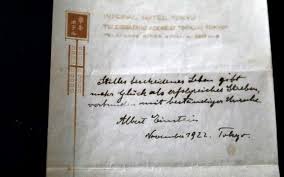 IMPERIAL HOTEL, TOKYO
TELEGRAPHIC ADDRESS
Stilles bescheidenes Leben gibt
mehr Glück als erfolgreiches Streben,
verbunden mit beständiger Unruhe.
Albert Einstein
November 1922. Tokyo.